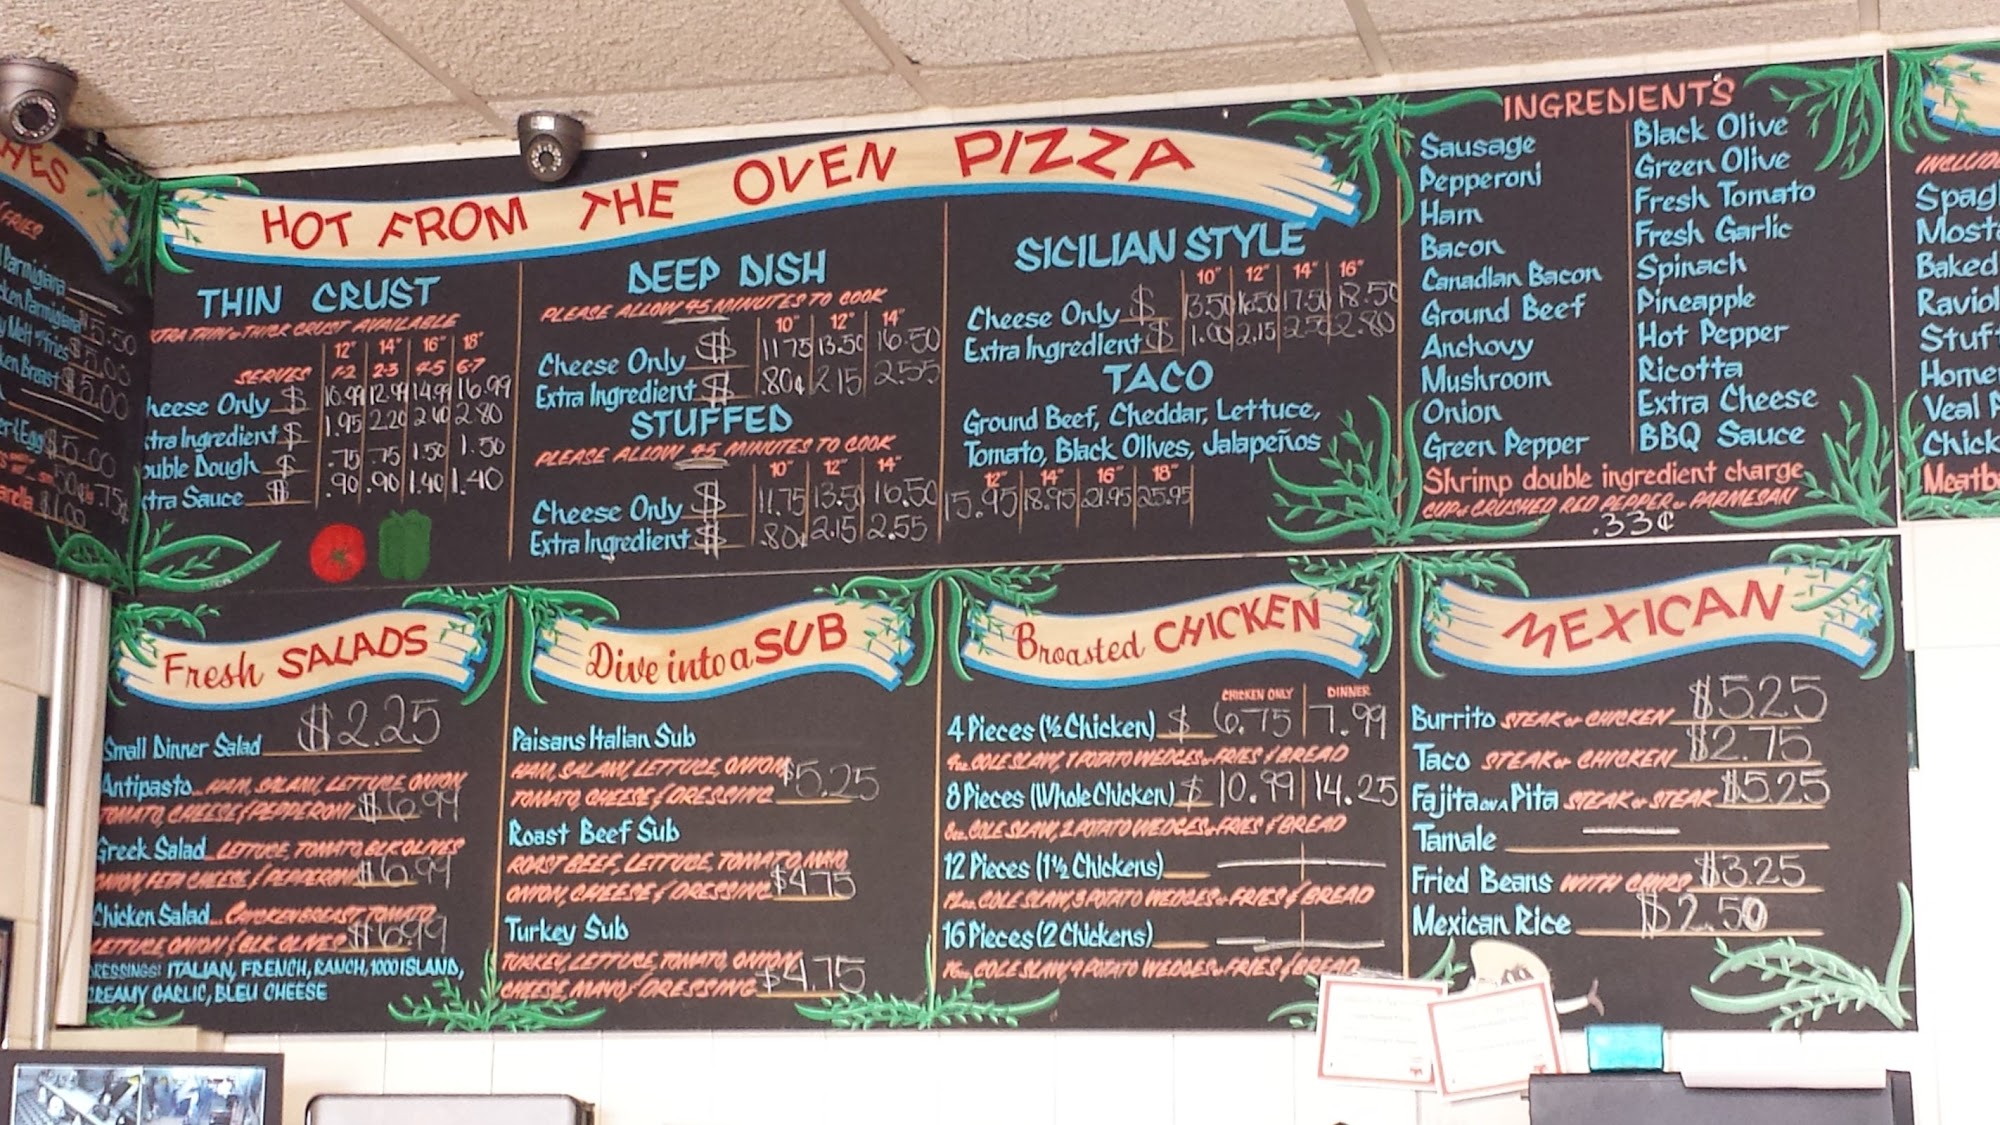 HOT FROM THE OVEN PIZZA
THIN CRUST
THIN or THICK CRUST AVAILABLE
12" 14" 16" 18"
SERVES 1-2 2-3 4-5 6-7
Cheese Only $ 10.99 12.99 14.99 16.99
Extra Ingredient $ 1.95 2.20 2.40 2.80
Double Dough $ .75 .75 1.50 1.50
Extra Sauce $ .90 .90 1.40 1.40
DEEP DISH
PLEASE ALLOW 45 MINUTES TO COOK
10" 12" 14"
Cheese Only $ 11.75 13.50 16.50
Extra Ingredient $ .80¢ 2.15 2.55
STUFFED
PLEASE ALLOW 45 MINUTES TO COOK
10" 12" 14"
Cheese Only $ 11.75 13.50 16.50
Extra Ingredient $ .80¢ 2.15 2.55
SICILIAN STYLE
10" 12" 14" 16"
Cheese Only $ 13.50 16.50 17.50 18.50
Extra Ingredient $ 1.00 2.15 2.50 2.80
TACO
Ground Beef, Cheddar, Lettuce,
Tomato, Black Olives, Jalapeños
12" 14" 16" 18"
15.95 18.95 21.95 25.95
INGREDIENTS
Sausage
Pepperoni
Ham
Bacon
Canadian Bacon
Ground Beef
Anchovy
Mushroom
Onion
Green Pepper
Black Olive
Green Olive
Fresh Tomato
Fresh Garlic
Spinach
Pineapple
Hot Pepper
Ricotta
Extra Cheese
BBQ Sauce
Shrimp double ingredient charge
CUP of CRUSHED RED PEPPER or PARMESAN
.33¢
Fresh SALADS
Small Dinner Salad $2.25
Antipasto... HAM, SALAMI, LETTUCE, ONION
TOMATO, CHEESE & PEPPERONI $6.99
Greek Salad... LETTUCE, TOMATO, BLK OLIVES
ONION, FETA CHEESE & PEPPERONI $6.99
Chicken Salad... CHICKEN BREAST, TOMATO,
LETTUCE, ONION & BLK OLIVES $6.99
DRESSINGS: ITALIAN, FRENCH, RANCH, 1000 ISLAND,
CREAMY GARLIC, BLEU CHEESE
Dive into a SUB
Paisans Italian Sub
HAM, SALAMI, LETTUCE, ONION
TOMATO, CHEESE & DRESSING $5.25
Roast Beef Sub
ROAST BEEF, LETTUCE, TOMATO, MAYO,
ONION, CHEESE & DRESSING $4.75
Turkey Sub
TURKEY, LETTUCE, TOMATO, ONION
CHEESE, MAYO & DRESSING $4.75
Broasted CHICKEN
CHICKEN ONLY DINNER
4 Pieces (½ Chicken) $ 6.75 7.99
4oz. COLE SLAW, 1 POTATO WEDGES or FRIES & BREAD
8 Pieces (Whole Chicken) $ 10.99 14.25
8oz. COLE SLAW, 2 POTATO WEDGES or FRIES & BREAD
12 Pieces (1½ Chickens)
12oz. COLE SLAW, 3 POTATO WEDGES or FRIES & BREAD
16 Pieces (2 Chickens)
16oz. COLE SLAW, 4 POTATO WEDGES or FRIES & BREAD
MEXICAN
Burrito STEAK or CHICKEN $5.25
Taco STEAK or CHICKEN $2.75
Fajita ON A Pita STEAK or STEAK $5.25
Tamale
Fried Beans WITH CHIPS $3.25
Mexican Rice $2.50